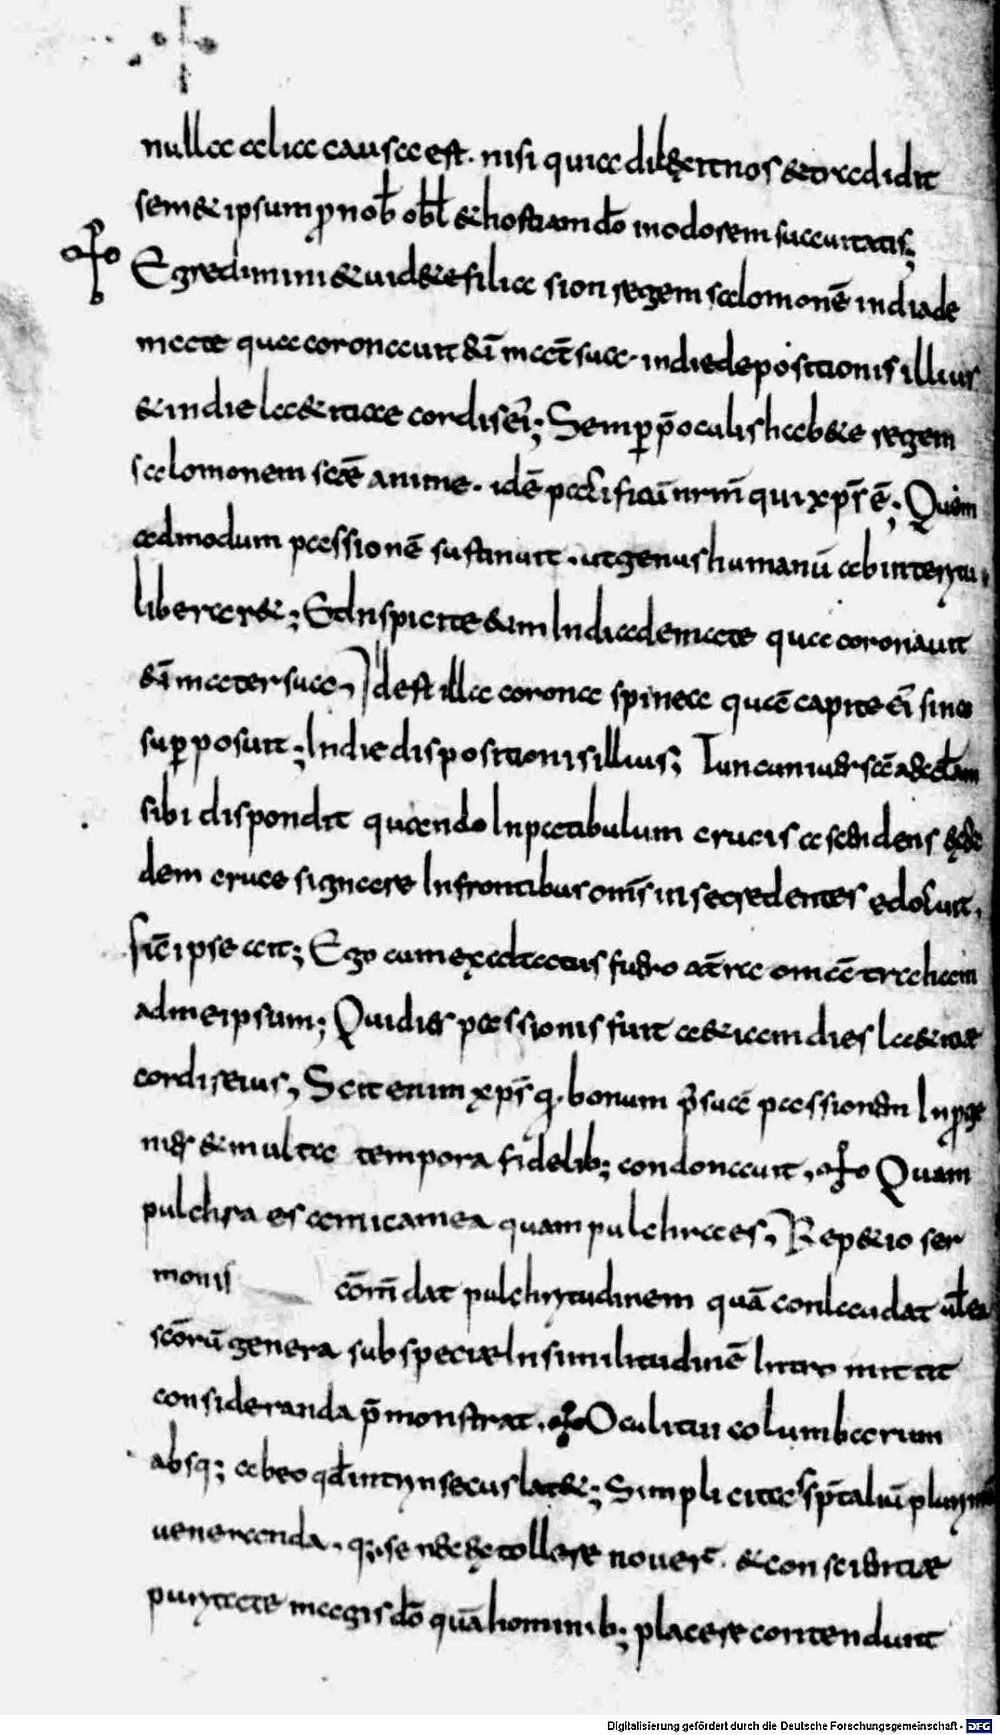 nulla alia causa est. nisi quia dilexit nos & tradidit
sem& ipsum p nob obl & hostiam do inodorem suauitatis;
Egredimini & uid&e filia sion regem salomonē indiade
mate qua coronauit eū mat sua. indiedepositionis illius
& indie l&itiae cordis ei; Semp p oculis hab&e regem
salomonem scāe anime. idē pacificū nrm qui xp̄s ē; Quem
admodum passionē sustinuit. ut genus humanū ab interitu
liberar&; Et Inspicite eum In diademate qua coronauit
eū mater sua, Idest illa corona spinea quā capite ei sina
sup posuit; Indie dispositionis illius; Tunc
sibi dispondit quando In patibulum crucis ascendens
dem cruce signare In frontibus oms in se credentes edocuit.
sic ipse ait; Ego cum exaltatus fuero a tra omā traham
ad me ipsum; Qui dies passionis fuit a& iam dies l&itiae
cordis eius, Scit enim xp̄s q. bonum p suā passionem In
& multa tempora fidelib; condonauit, Quam
pulchra es amica mea quam pulchra es, Repetitio ser
monis cōm dat pulchritudinem quā conlaudat
scōrū genera sub speciae In similitudinē Intro mittit
consideranda p̄monstrat. Oculi tui columbarum
absq; ab eo qd intrinsecus lat&; Simplicitas sp̄talium
ueneranda. q. se nec extollere nouer. & conscientiae
puritate magis do quā hominib; placere contendunt
Digitalisierung gefördert durch die Deutsche Forschungsgemeinschaft - DFG